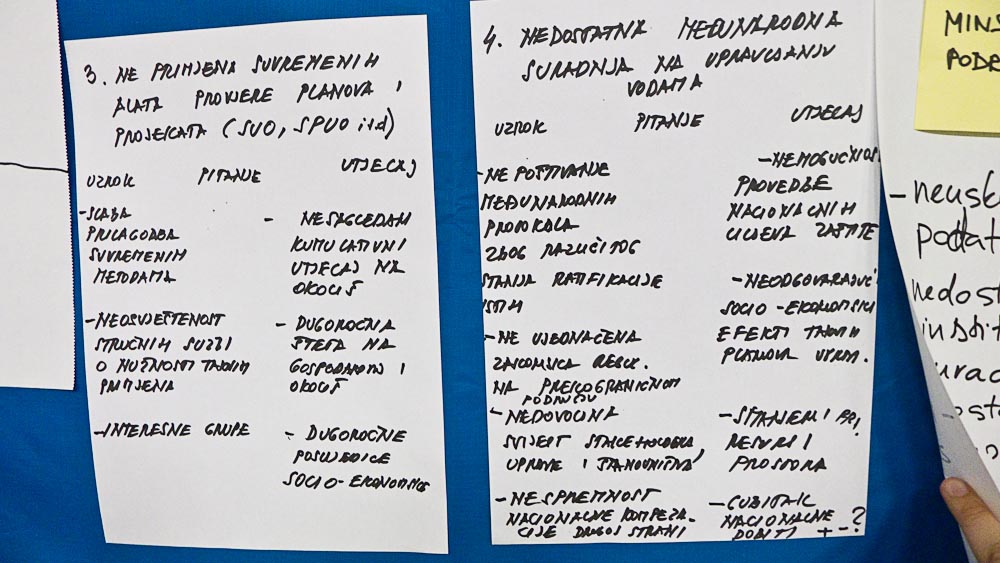 3. NE PRIMJENA SUVREMENIH
ALATA PROVJERE PLANOVA I
PROJEKATA (SUO, SPUO itd)
UZROK PITANJE UTJECAJ
- SLABA
PRILAGODBA
SUVREMENIM
METODAMA
- NEOSVJEŠTENOST
STRUČNIH SLUŽBI
O NUŽNOSTI TAKVIH
PRIMJENA
- INTERESNE GRUPE
- NESAGLEDAN
KUMULATIVNI
UTJECAJ NA
OKOLIŠ
- DUGOROČNA
ŠTETA NA
GOSPODARSTVU I
OKOLIŠ
- DUGOROČNE
POSLJEDICE
SOCIO-EKONOMSKE
4. NEDOSTATNA MEĐUNARODNA
SURADNJA NA UPRAVLJANJU
VODAMA
UZROK PITANJE UTJECAJ
- NE POŠTIVANJE
MEĐUNARODNIH
PROTOKOLA
ZBOG RAZLIČITOG
STANJA RATIFIKACIJE
ISTIH
- NE UJEDNAČENA
ZAKONSKA REGUL.
NA PREKOGRANIČNOM
PODRUČJU
- NEDOVOLJNA
SVIJEST STAKEHOLDERA,
UPRAVE I STANOVNIŠTVA
- NESPREMNOST
NACIONALNE KOMPENZA-
CIJE DRUGOJ STRANI
- NEMOGUĆNOST
PROVEDBE
NACIONALNIH
CILJEVA ZAŠTITE
- NEODGOVARAJUĆ
SOCIO-EKONOMSKI
EFEKTI TAKVIH
PLANOVA UPRAV.
RESURSI I
PROSTORA
- GUBITAK
NACIONALNE
DOBITI + - ?
MINS
PODR
- neusk
podat
nedost
instit
urad